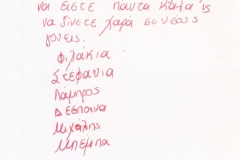 να είστε πάντα καλά'ις
να δίνετε χαρά σε νέους
γονείς.
Φιλάκια
Στεφανία
Λάμπρος
Δέσποινα
Μιχάλης
Μπέμπα